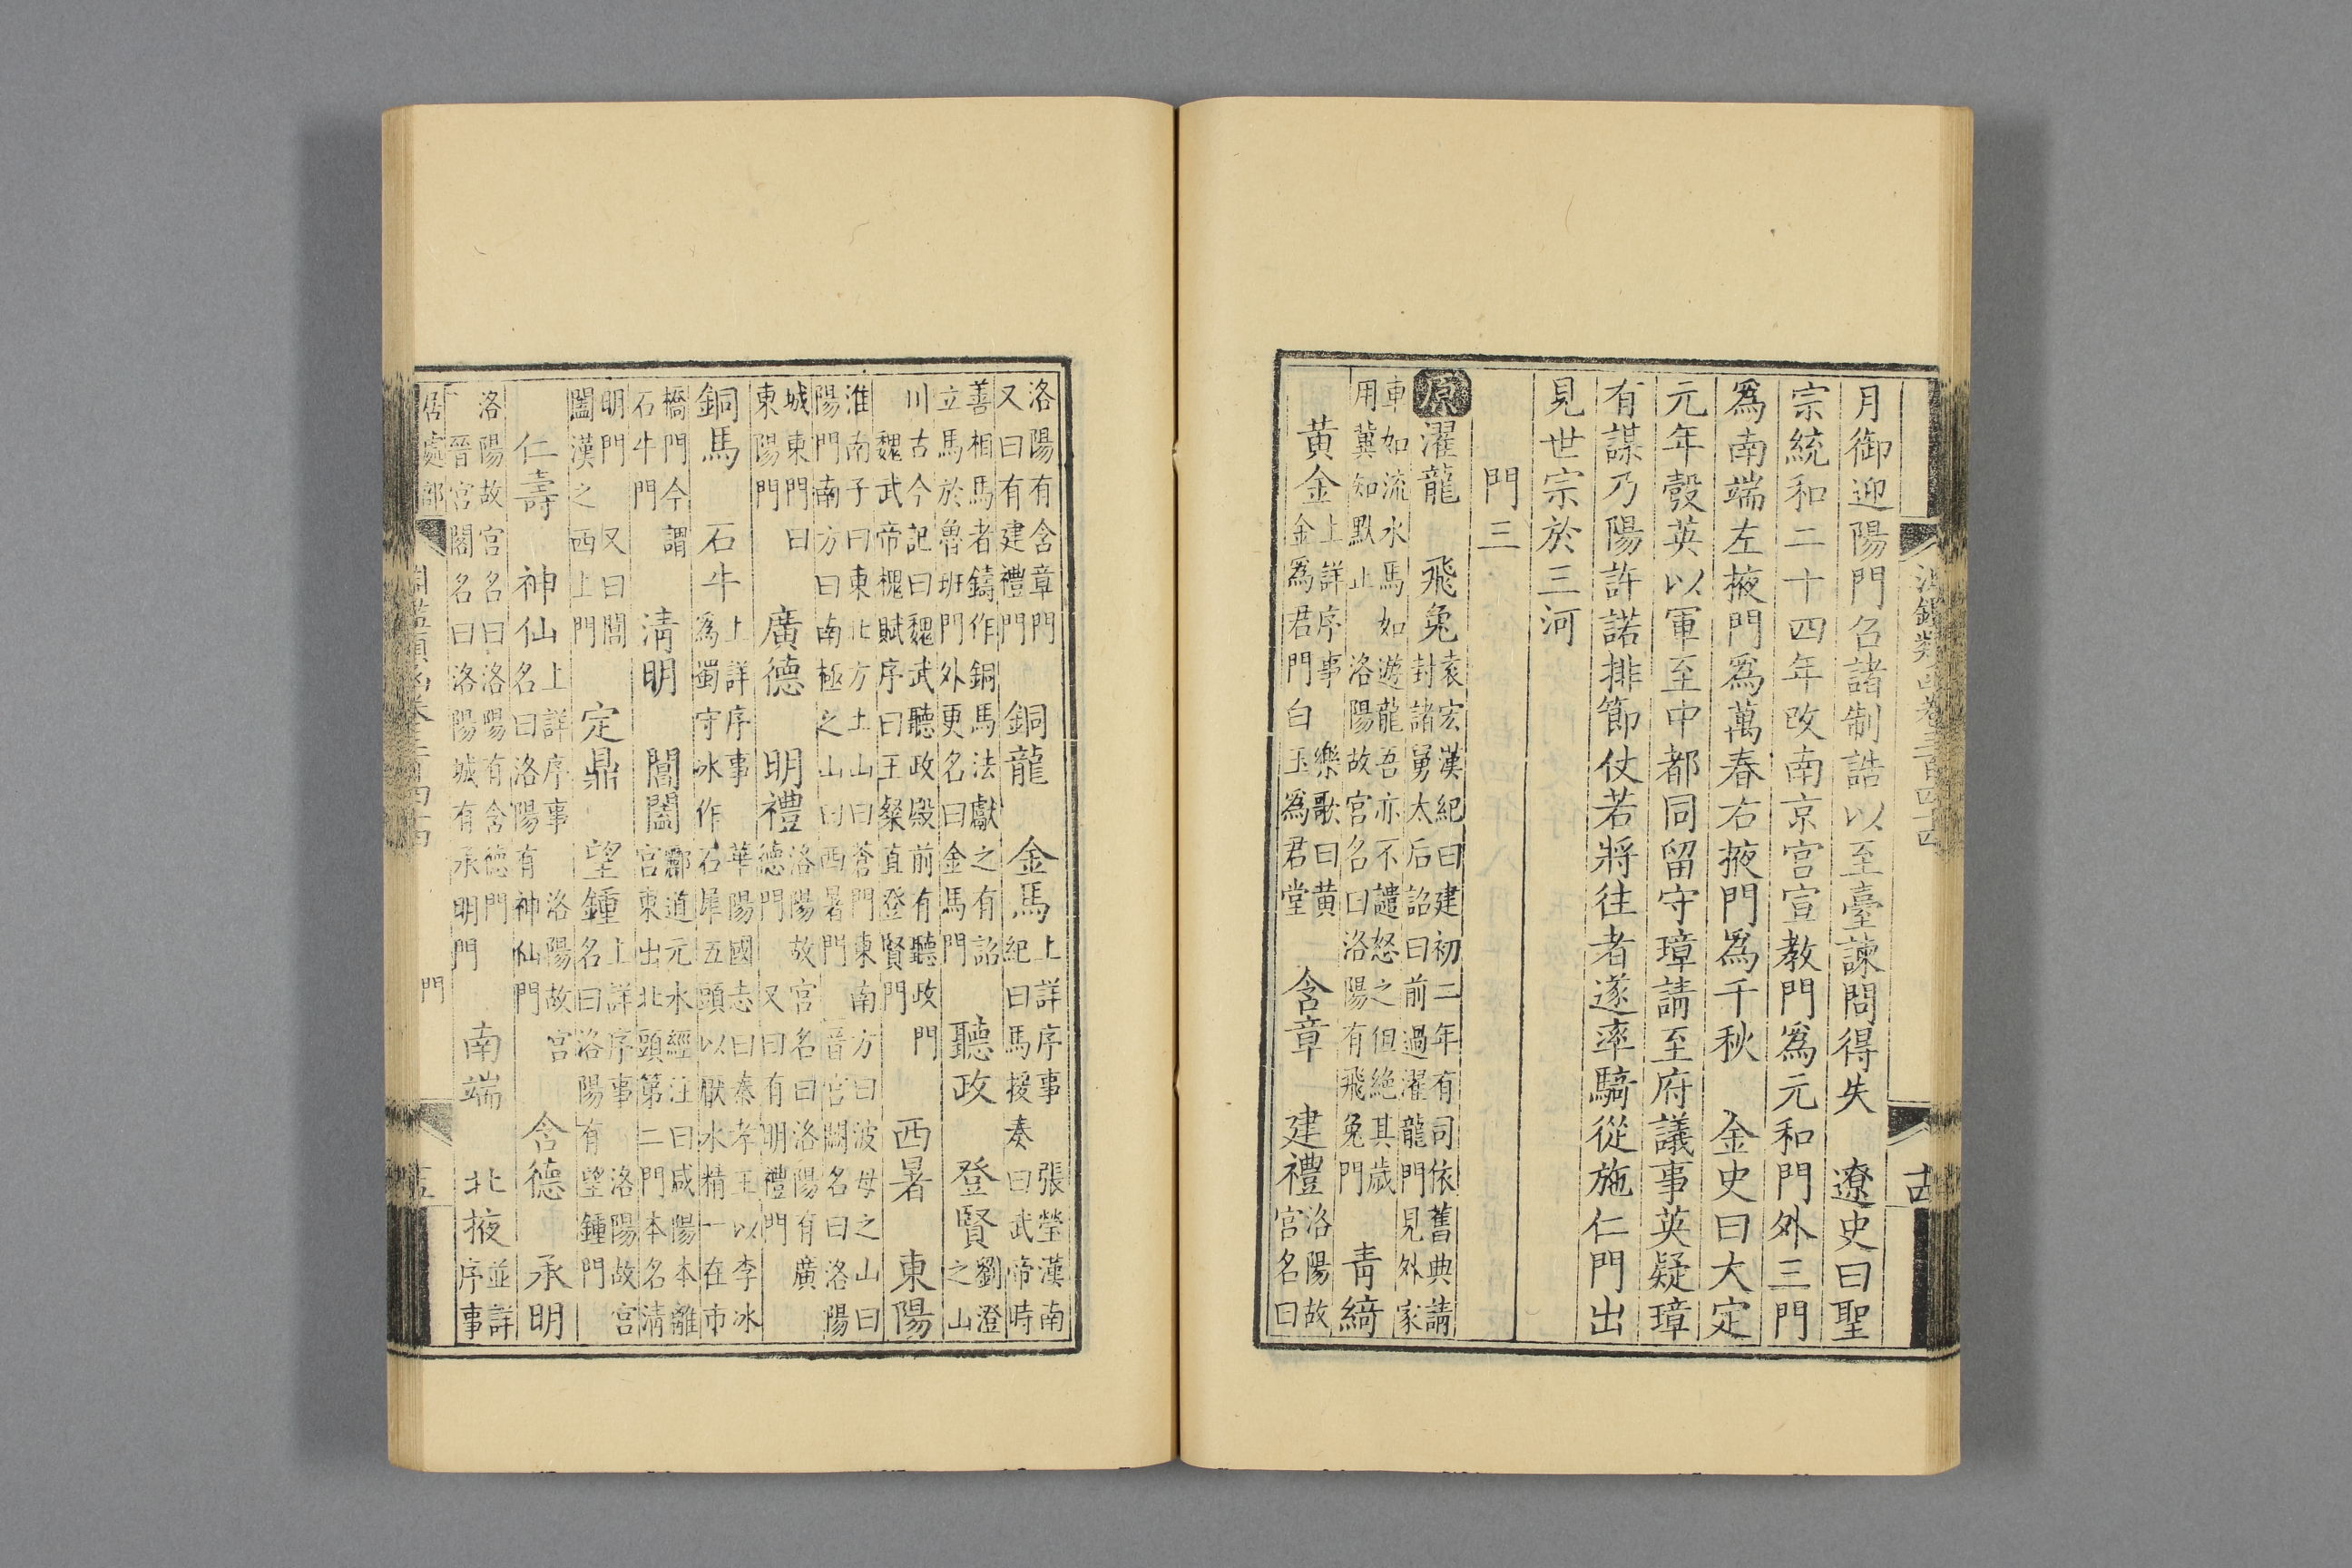 月御迎陽門召諸制誥以至臺諫問得失　遼史曰聖
宗統和二十四年改南京宮宣教門爲元和門外三門
爲南端左掖門爲萬春右掖門爲千秋　金史曰大定
元年彀英以軍至中都同留守璋請至府議事英疑璋
有謀乃陽許諾排節仗若將往者遂率騎從施仁門出
見世宗於三河
門三
原濯龍　飛兔袁宏漢紀曰建初二年有司依舊典請
封諸舅太后詔曰前過濯龍門見外家
車如流水馬如遊龍吾亦不譴怒之但絶其歲
用冀知默止　洛陽故宮名曰洛陽有飛兔門　青綺
黃金上詳序事　樂歌曰黃
金爲君門白玉爲君堂　含章　建禮洛陽故
宮名曰
洛陽有含章門
又曰有建禮門　銅龍　金馬上詳序事　張瑩漢南
紀曰馬援奏曰武帝時
善相馬者鑄作銅馬法獻之有詔
立馬於魯班門外更名曰金馬門　聽政　登賢劉澄
之山
川古今記曰魏武聽政殿前有聽政門
魏武帝槐賦序曰王粲直登賢門　西暑　東陽
淮南子曰東北方土山曰蒼門東南方曰波母之山曰
陽門南方曰南極之山曰暑門　晉宮閣名曰洛陽
城東門曰
東陽門　廣德　明禮洛陽故宮名曰洛陽有廣
德門　又曰有明禮門
銅馬　石牛上詳序事　華陽國志曰秦孝王以李冰
爲蜀守冰作石犀五頭以厭水精一在市
橋門今謂
石牛門　清明　閶闔酈道元水經注曰咸陽本離
宮東出北頭第二門本名清
明門　又曰閶
闔漢之西上門　定鼎　望鍾上詳序事　洛陽故宮
名曰洛陽有望鍾門
仁壽　神仙上詳序事　洛陽故宮
名曰洛陽有神仙門　含德　承明
洛陽故宮名曰洛陽有含德門
晉宮閣名曰洛陽城有承明門　南端　北掖並詳
序事
居處部　門